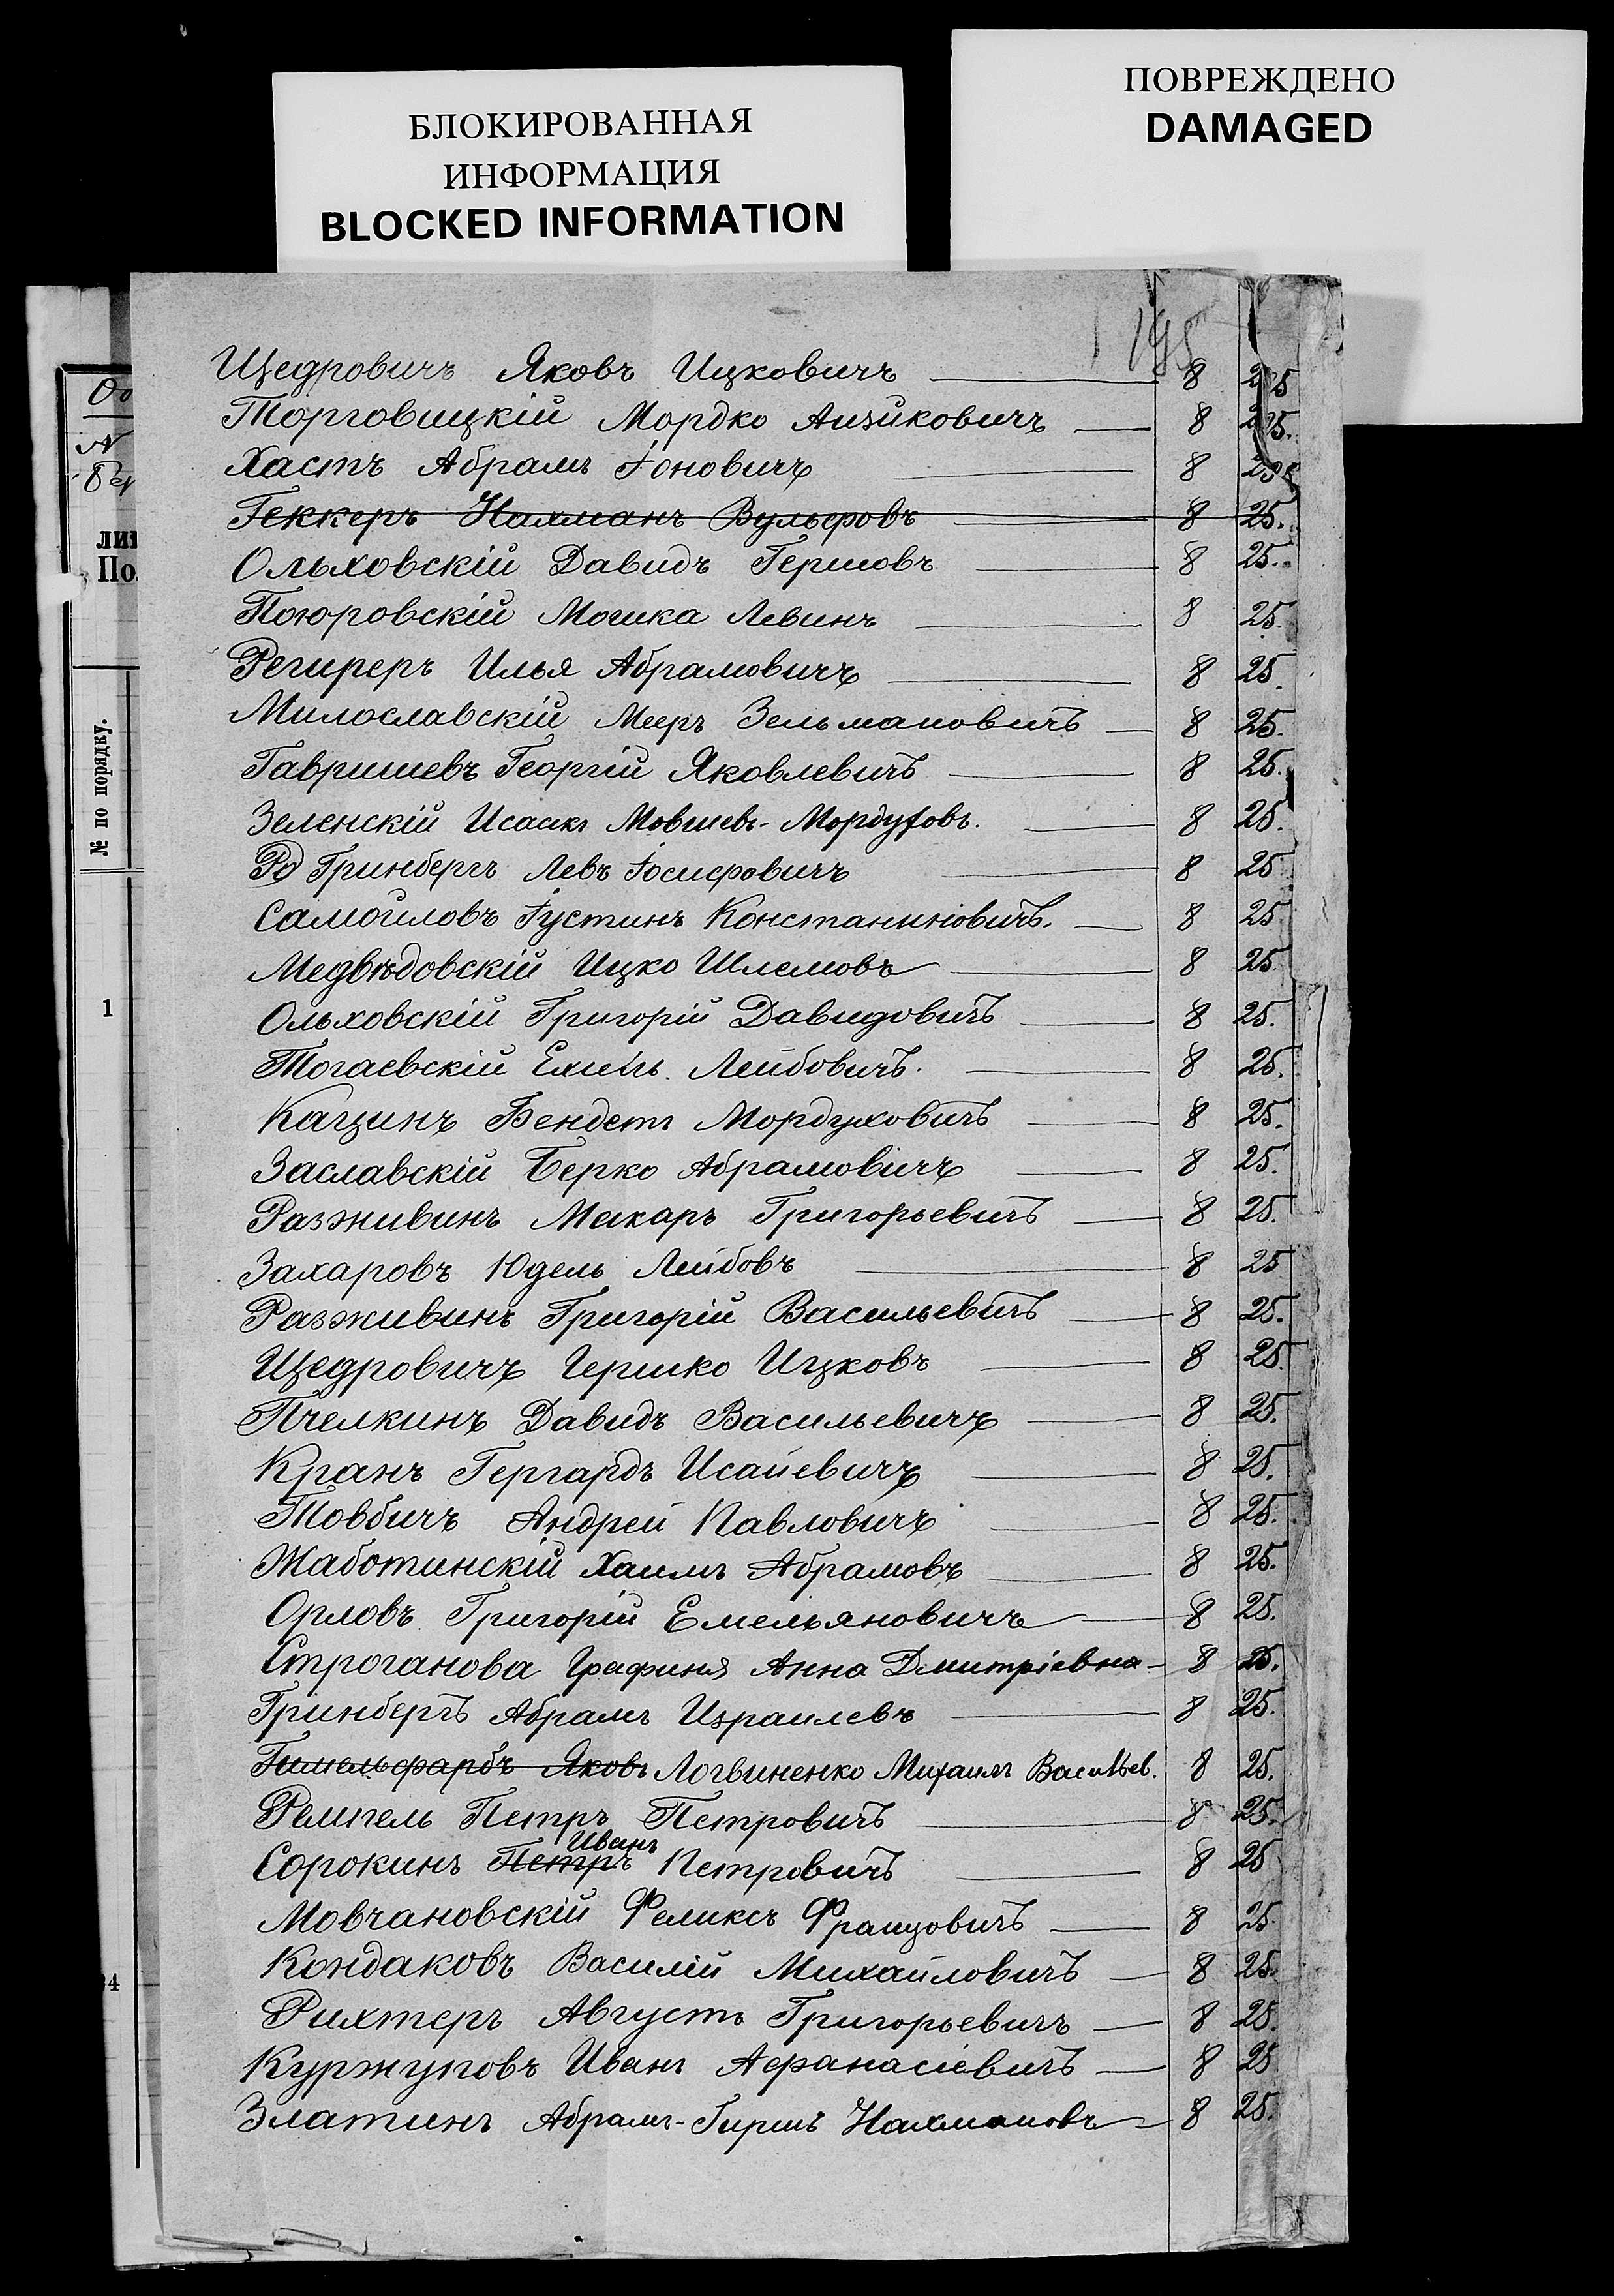 БЛОКИРОВАННАЯ
ИНФОРМАЦИЯ
BLOCKED INFORMATION
ПОВРЕЖДЕНО
DAMAGED
195
Щедровичъ Яковъ Ицковичъ 8 25
Торговицкій Мордко Аизиковичъ 8 25.
Хастъ Абрамъ Іоновичъ 8 25
Геккеръ Нахманъ Вульфовъ 8 25.
Ольховскій Давидъ Гершовъ 8 25.
Погоровскій Мошка Левинъ 8 25.
Региреръ Илья Абрамовичъ 8 25.
Милославскій Мееръ Зельмановичъ 8 25.
Гавришевъ Георгій Яковлевичъ 8 25.
Зеленскій Исаакъ Мовшевъ-Мордуховъ. 8 25.
Гринбергъ Левъ Іосифовичъ 8 25
Самойловъ Іустинъ Константиновичъ. 8 25
Медвѣдовскій Ицко Шлемовъ 8 25.
Ольховскій Григорій Давидовичъ 8 25.
Тогаевскій Лейбовичъ. 8 25.
Кацинъ Бендетъ Мордуховичъ 8 25.
Заславскій Берко Абрамовичъ 8 25.
Разживинъ Макаръ Григорьевичъ 8 25.
Захаровъ Юдель Лейбовъ 8 25
Разживинъ Григорій Васильевичъ 8 25.
Щедровичъ Гершко Ицковъ 8 25.
Пчелкинъ Давидъ Васильевичъ 8 25.
Кранъ Гергардъ Исаиевичъ 8 25.
Товбичъ Андрей Павловичъ 8 25.
Жаботинскій Хаимъ Абрамовъ 8 25.
Орловъ Григорій Емельяновичъ 8 25.
Строганова Графиня Анна Дмитріевна 8 25.
Гринбергъ Абрамъ Израилевъ 8 25.
Гимельфарбъ Яковъ Логвиненко Михаилъ Васильев. 8 25.
Ремпель Петръ Петровичъ 8 25.
Иванъ
Сорокинъ Петръ Петровичъ 8 25
Мовчановскій Феликсъ Францовичъ 8 25.
Кондаковъ Василій Михайловичъ 8 25.
Рихтеръ Августъ Григорьевичъ 8 25.
Куржуповъ Иванъ Афанасіевичъ 8 25
Златинъ Абрамъ-Гиршъ Нахмановъ 8 25.
№ по порядку.
1